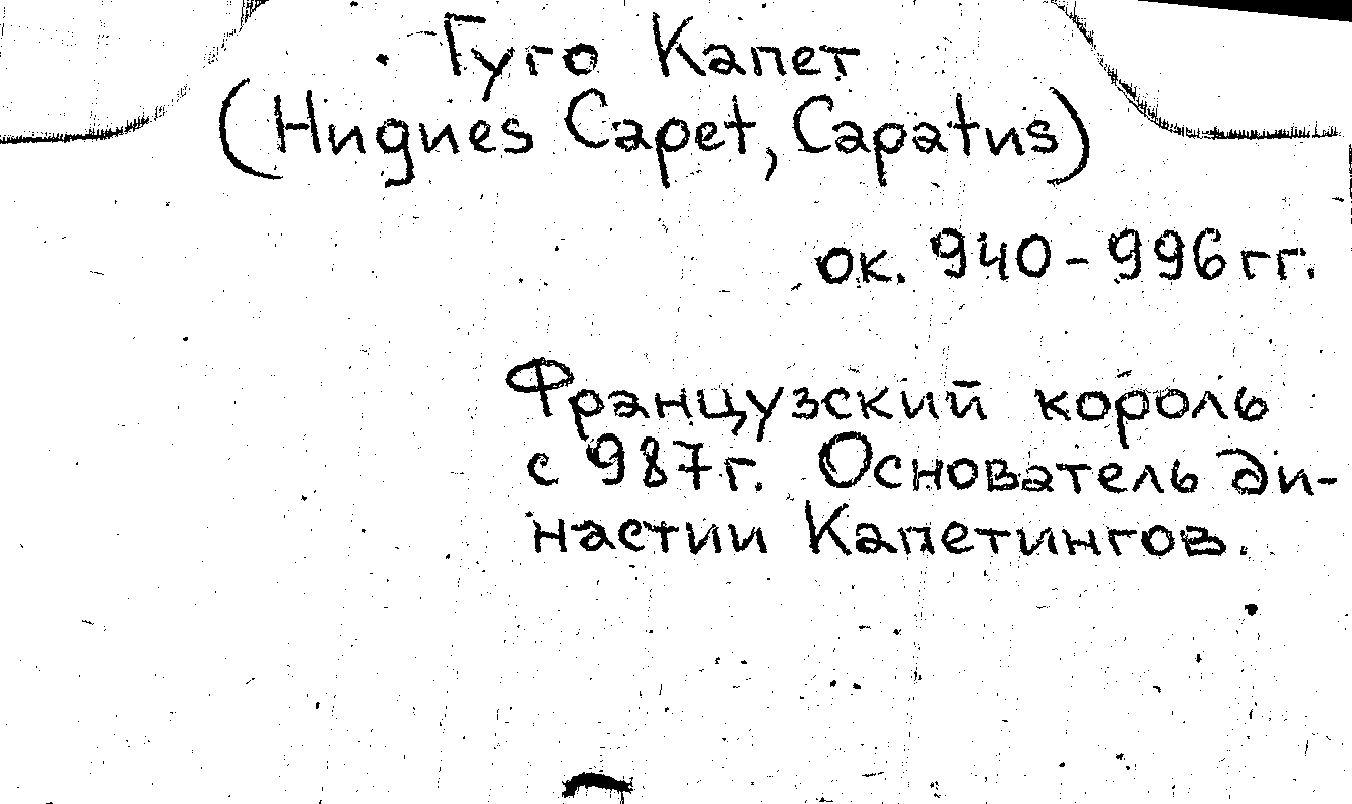 Гуго Капет
(Hugues Capet, Capatus)
ок. 940-996 гг.
Французский король
с 987 г. Основатель ди-
настии Капетингов.